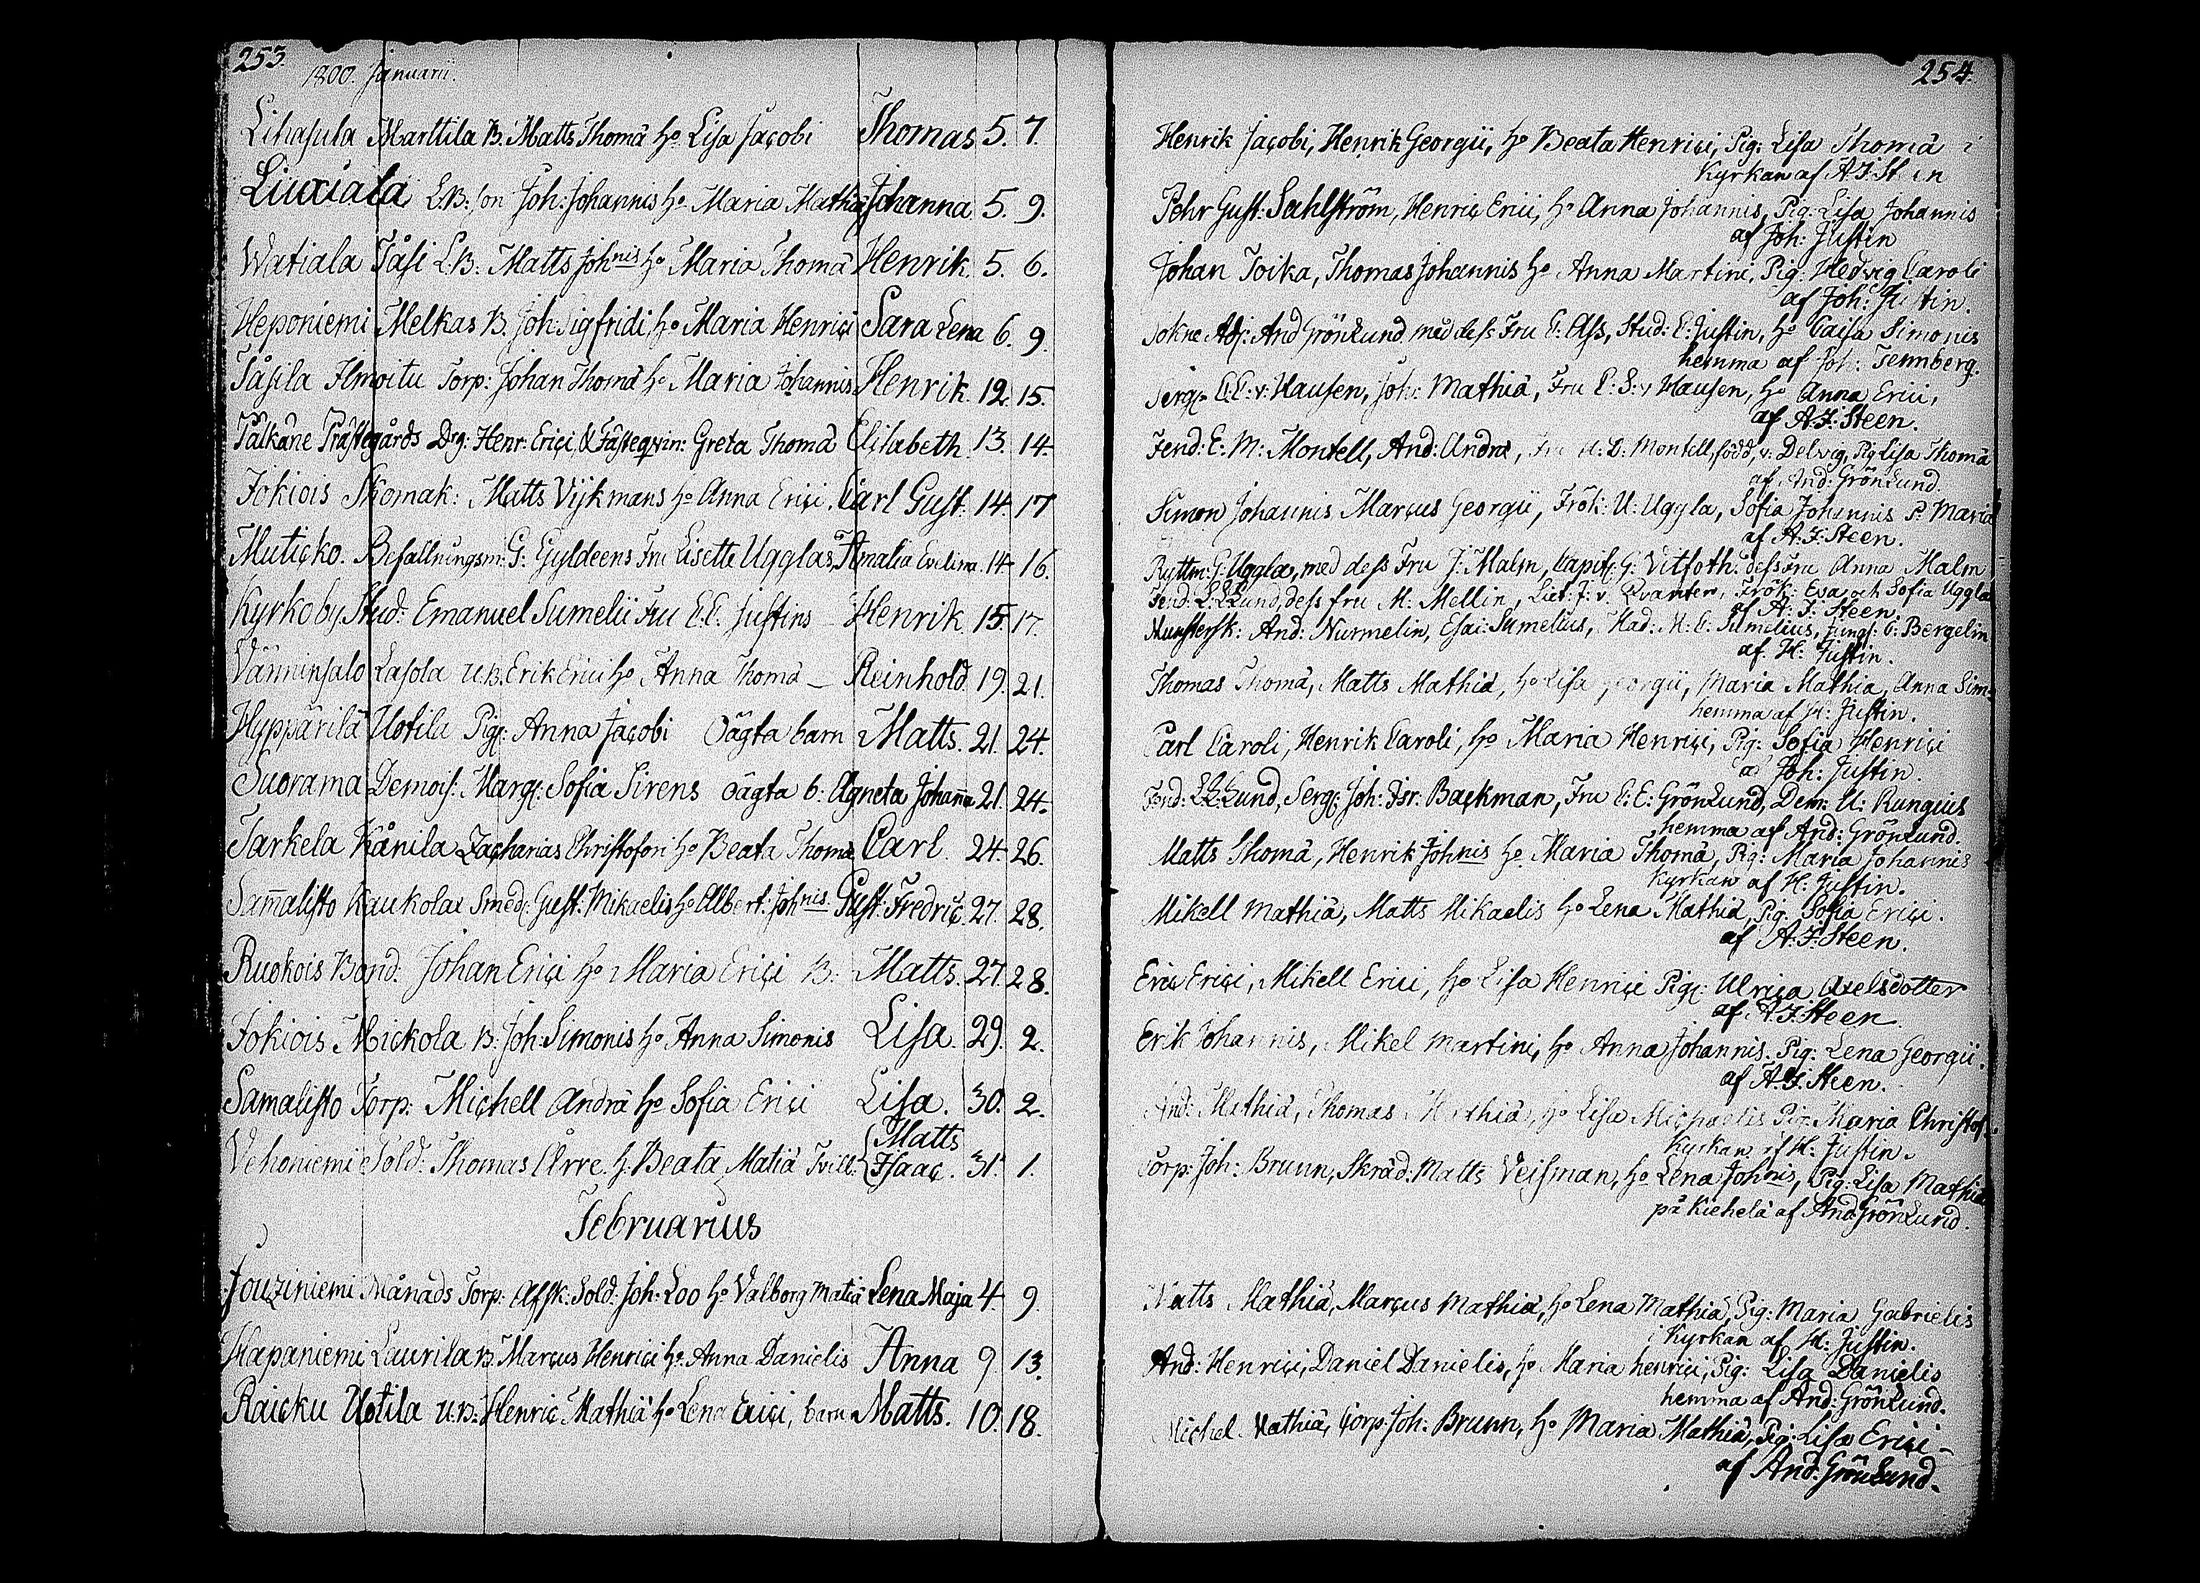 253.
1800. Januarii.
Lihasula Marttila B. Matts Thomæ ho Lisa Jacobi Thomas 5. 7.
Liuxiala L.B: son Joh: Johannis ho Maria Mathiæ Johanna 5. 9.
Watiala Påsi L.B: Matts Johnis ho Maria Thomä Henrik. 5. 6.
Heponiemi Melkas B. Joh: Sigfridi, ho Maria Henrici Sara Lena 6. 9.
Ilmoitu Torp: Johan Thomä ho Maria Johannis Henrik. 12. 15.
Pälkäne Prästegårds Drg: Henr: Erici & Fästeqvin: Greta Thomä Elisabeth. 13. 14.
Jokiois Skomak: Matts Vijkmans ho Anna Erici. Carl Gust. 14. 17
Muticko. Befallningsm: G: Gyldeens Fru Lisette Ugglas, Amalia Evelina. 14. 16.
Kyrkoby Stud: Emanuel Sumelii Fru E.E. Justins – Henrik. 15. 17.
Vänninsalo Lasola U.B. Erik Erici ho Anna Thomä – Reinhold. 19. 21.
Hyppärilä Uotila Pig: Anna Jacobi Oägta barn Matts. 21. 24.
Suorama Demois: Marg: Sofia Sirens oägta b: Agneta Johana 21. 24.
Tarkela Kånila Zacharias Christofori ho Beata Thomä Carl. 24. 26.
Samalisto Kaukola Smed: Gust: Mikaelis ho Albert: Johnis Gust: Fredric. 27. 28.
Ruokois Bond: Johan Erici ho Maria Erici B: Matts. 27. 28.
Jokiois Mickola B: Joh: Simonis ho Anna Simonis Lisa. 29. 2.
Samalisto Torp: Michell Andrä ho Sofia Erici Lisa. 30. 2.
Vehoniemi Sold: Thomas Ärre. h: Beata Matiä Tvill: { Matts
Isaac. 31. 1.
Februarius
Jouziniemi Månads Torp: Afsk: Sold. Joh: Loo ho Valborg Matiä Lena Maja 4. 9.
Hapaniemi Laurila B. Marcus Henrici ho Anna Danielis Anna 9 13.
Raicku Uotila U.B: Henric Mathiä ho Lena Erici, barn Matts. 10. 18.
254.
Henrik Jacobi, Henrik Georgii, ho Beata Henrici, Pig: Lisa Thomä i
Kyrkan af A.F. St en
Pehr Gust: Sahlström, Henric Erici, ho Anna Johannis, Pig: Lisa Johannis
af Joh: Justin
Johan Toika, Thomas Johannis ho Anna Martini, Pig. Hedvig Caroli
af Joh: Justin.
Sokne Adj: And Grönlund, med dess Fru E: Ass, Stud: E: Justin, ho Caisa Simonis
hemma af Joh: Tennberg.
Serg: C.E: v: Hausen, Joh: Mathiä, Fru C: S: v Hausen, ho Anna Erici,
af A.F. Steen.
Fend: E: M: Montell, And: Andrä, Fru Montell, född, v: Delvig, Pig Lisa Thomä
af And: Grönlund.
Simon Johannis Marcus Georgii, Frök: U: Uggla, Sofia Johannis P: Maria
af A.F. Steen.
Ryttm: G: Uggla, med dess Fru J: Malm, Capit: G: Vitfoth: dess Fru Anna Malm
Fend: L: L. Lund, dess fru M: Mellin, Lieut: F: v. Qvanten, Frök: Eva och Sofia Uggla
af A. F. Steen.
Munstersk: And: Nurmelin, Esai: Sumelius, Mad: M: C: Sumelius, Jungf: C: Bergelin
af. H: Justin.
Thomas Thomä, Matts Mathiä, ho Lisa Georgii, Maria Mathiä, Anna Sim:
hemma af H: Justin.
Carl Caroli, Henrik Caroli, ho Maria Henrici, Pig: Sofia Henrici
af Joh: Justin.
Fend: L.L. Lund, Serg: Joh: Isr: Backman, Fru C: E: Grönlund, Dem: U: Rungius
hemma af And: Grönlund.
Matts Thomä, Henrik Johnis ho Maria Thomä, Pig: Maria Johannis
Kyrkan af H: Justin.
Mikell Mathiä, Matts Mikaelis ho Lena Mathiä, Pig. Sofia Erici.
af A.F. Steen.
Eric Erici, Mikell Erici, ho Lisa Henrici Pig: Ulrica Axelsdotter
af A.F. Steen.
Erik Johannis, Mikel Martini, ho Anna Johannis. Pig: Lena Georgii.
af A.F. Steen.
And: Mathiä, Thomas Mathiä, ho Lisa Michaelis Pig: Maria Christof:
Kyrkan af H: Justin.
Corp: Joh: Brunn, Skräd: Matts Veisman, ho Lena Johnis, Pig: Lisa Mathiä
på Kiehelä af And: Grönlund.
Matts Mathiä, Marcus Mathiä, ho Lena Mathiä, Pig: Maria Gabrielis
i Kyrkan af H: Justin.
And: Henrici, Daniel Danielis, ho Maria henrici, Pig: Lisa Danielis
hemma af And: Grönlund.
Michel. Mathiä, Corp: Joh: Brunn, ho Maria Mathiä, Pig: Lisa Erici –
af And: Grönlund.